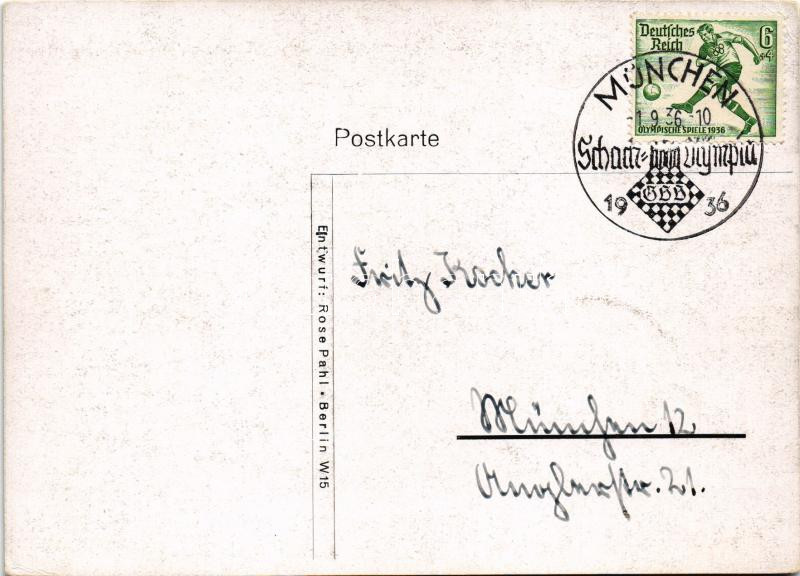 Deutsches
Reich
6
+4
OLYMPISCHE SPIELE 1936
MÜNCHEN
-1.9.36-10
Schach-Olympia
GSB
1936
Postkarte
Entwurf: Rose Pahl • Berlin W15
Fritz Kocher
München 12
str. 21.